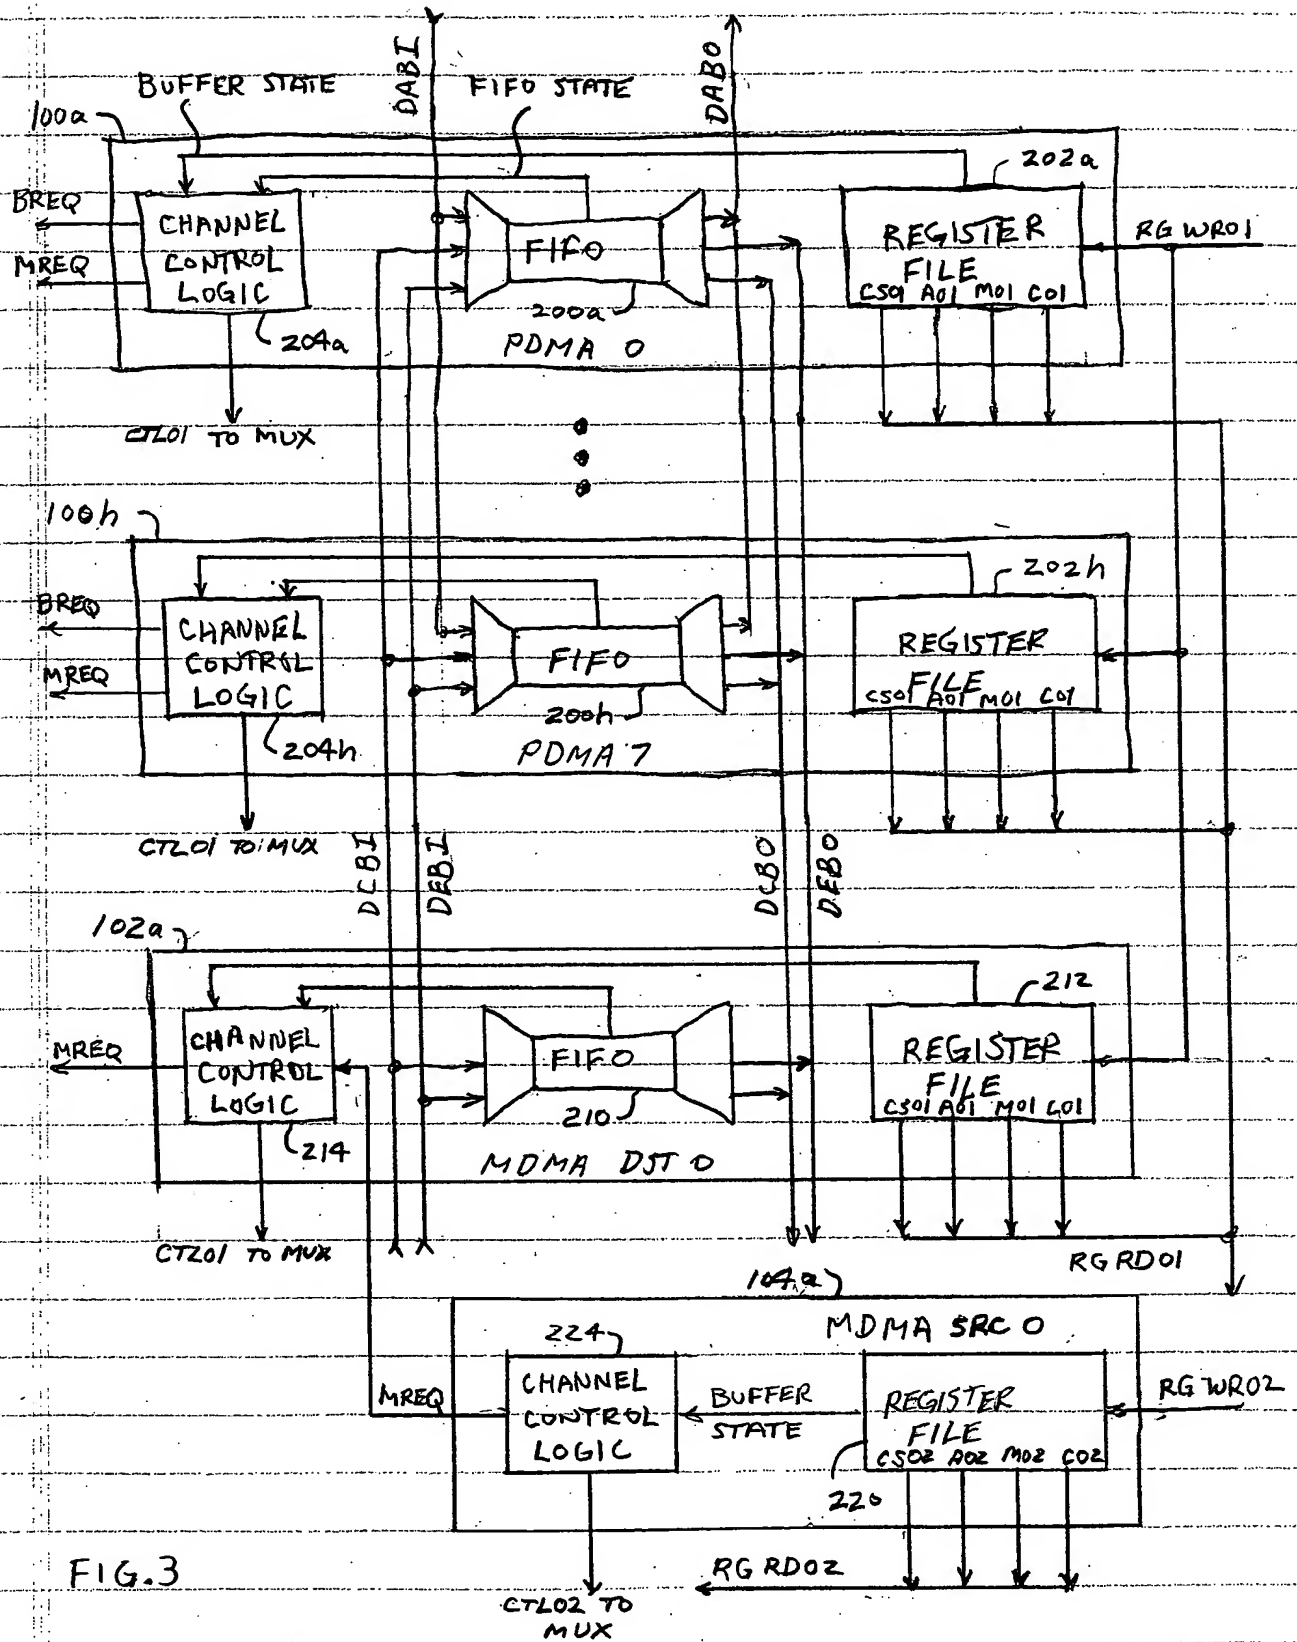 DABI
DABO
BUFFER STATE
FIFO STATE
100a
202a
BREQ
MREQ
CHANNEL
CONTROL
LOGIC
FIFO
REGISTER
FILE
CS01 A01 M01 C01
RG WR01
204a
200a
PDMA 0
CTL01 TO MUX
100h
202h
BREQ
MREQ
CHANNEL
CONTROL
LOGIC
FIFO
REGISTER
FILE
CS01 A01 M01 C01
204h
200h
PDMA 7
CTL01 TO MUX
DCBI
DEBI
DCBO
DEBO
102a
212
MREQ
CHANNEL
CONTROL
LOGIC
FIFO
REGISTER
FILE
CS01 A01 M01 C01
214
210
MDMA DST 0
CTL01 TO MUX
RG RD01
104a
MDMA SRC 0
224
MREQ
CHANNEL
CONTROL
LOGIC
BUFFER
STATE
REGISTER
FILE
CS02 A02 M02 C02
RG WR02
220
RG RD02
CTL02 TO
MUX
FIG.3